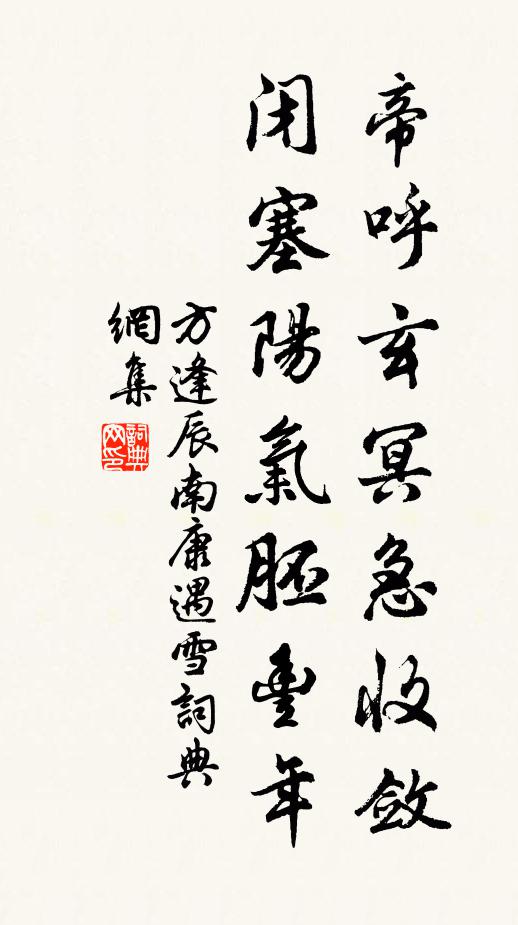 帝呼玄冥急收斂
閉塞陽氣胚豐年
方逢辰南康遇雪詞典
網集
詞典
网印